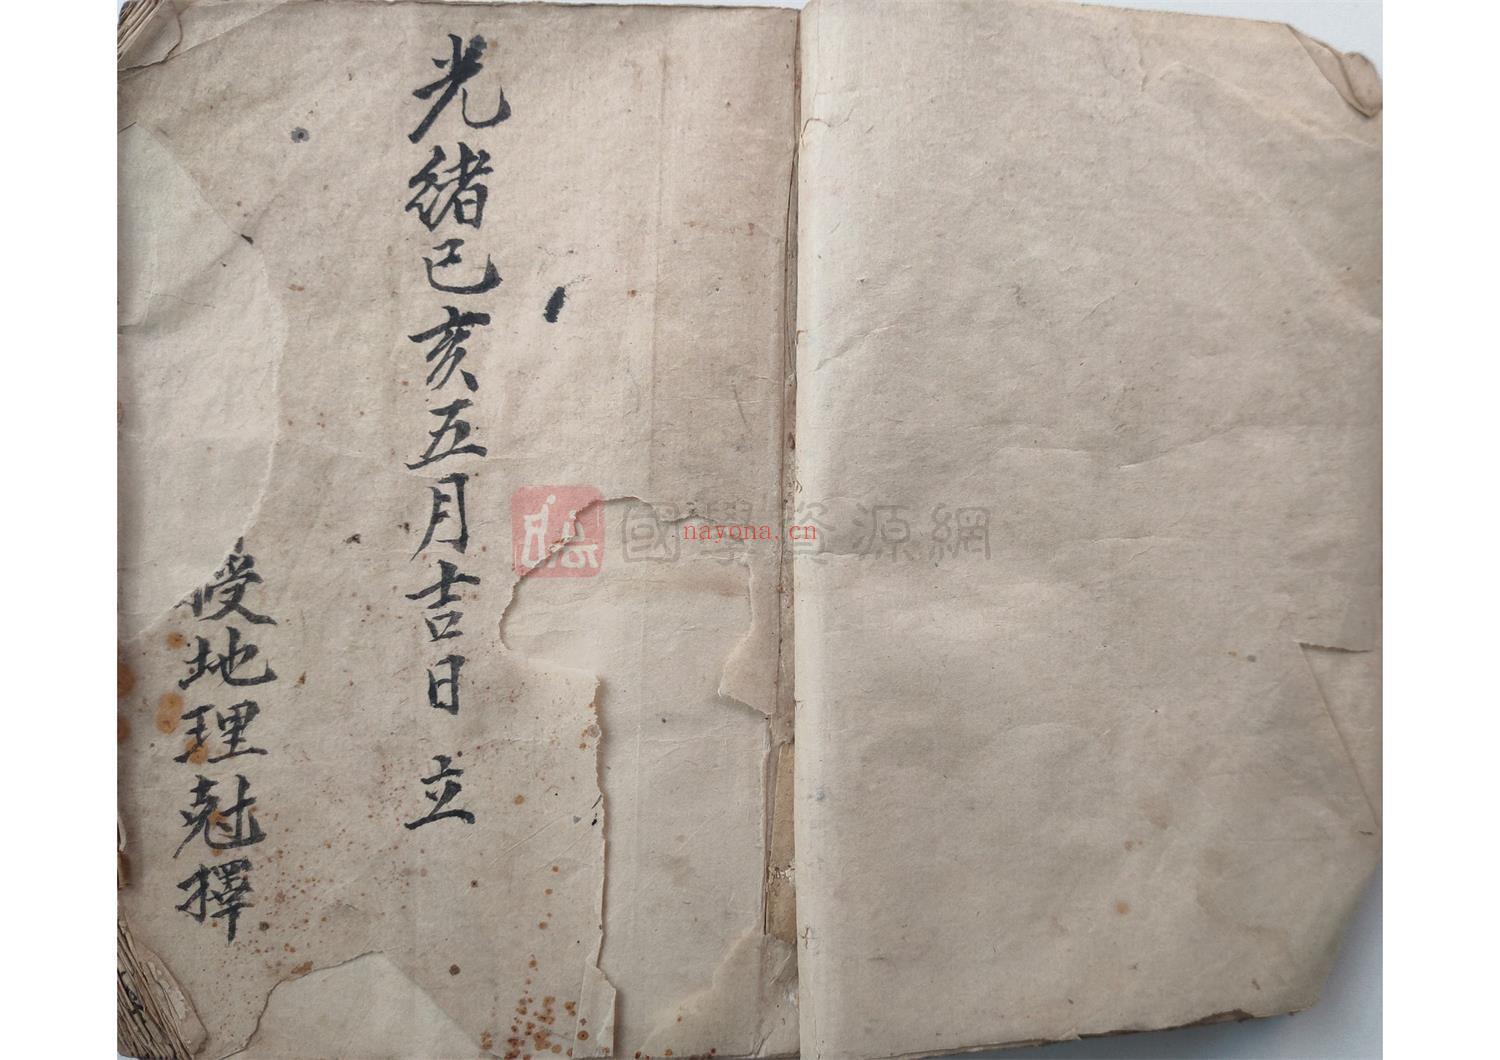 光緒己亥五月吉日 立
授地理尅擇
國學資源網
nayona.cn